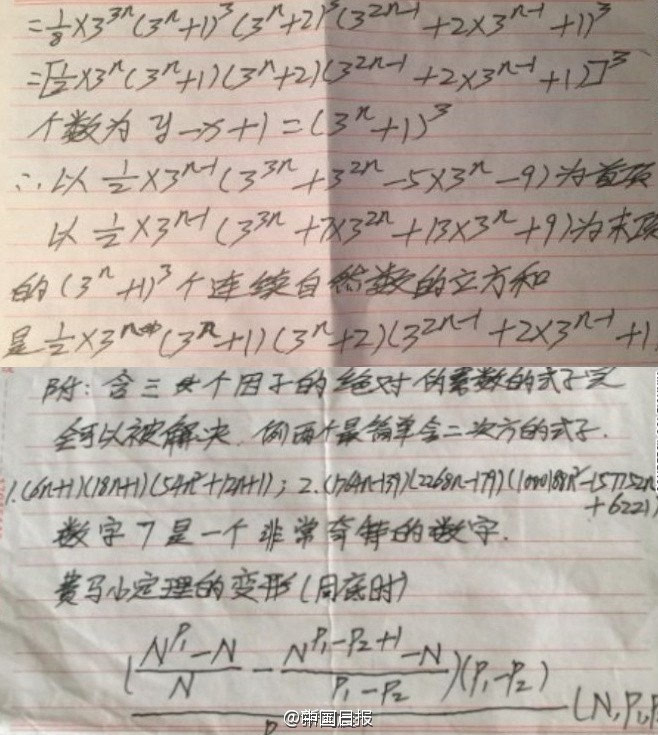 =1/8×3^{3n}(3^n+1)^3(3^n+2)^3(3^{2n-1}+2×3^{n-1}+1)^3
=[1/2×3^n(3^n+1)(3^n+2)(3^{2n-1}+2×3^{n-1}+1)]^3
个数为 y-x+1=(3^n+1)^3
∴以 1/2×3^{n-1}(3^{3n}+3^{2n}-5×3^n-9)为首项
以 1/2×3^{n-1}(3^{3n}+7×3^{2n}+13×3^n+9)为末项
的(3^n+1)^3个连续自然数的立方和
是1/2×3^n(3^n+1)(3^n+2)(3^{2n-1}+2×3^{n-1}+1
附:含三个因子的绝对伪素数的式子完
全可以被解决.例两个最简单含二次方的式子.
1.(6n+1)(18n+1)(54n²+12n+1);2.(1764n-139)(2268n-179)(1000188n²-157752n
+6221)
数字7是一个非常奇特的数字.
费马小定理的变形(同底时)
((N^{P₁}-N)/N-(N^{P₁-P₂+1}-N)/(P₁-P₂))(P₁-P₂)
(N,P₁,P
@中国日报